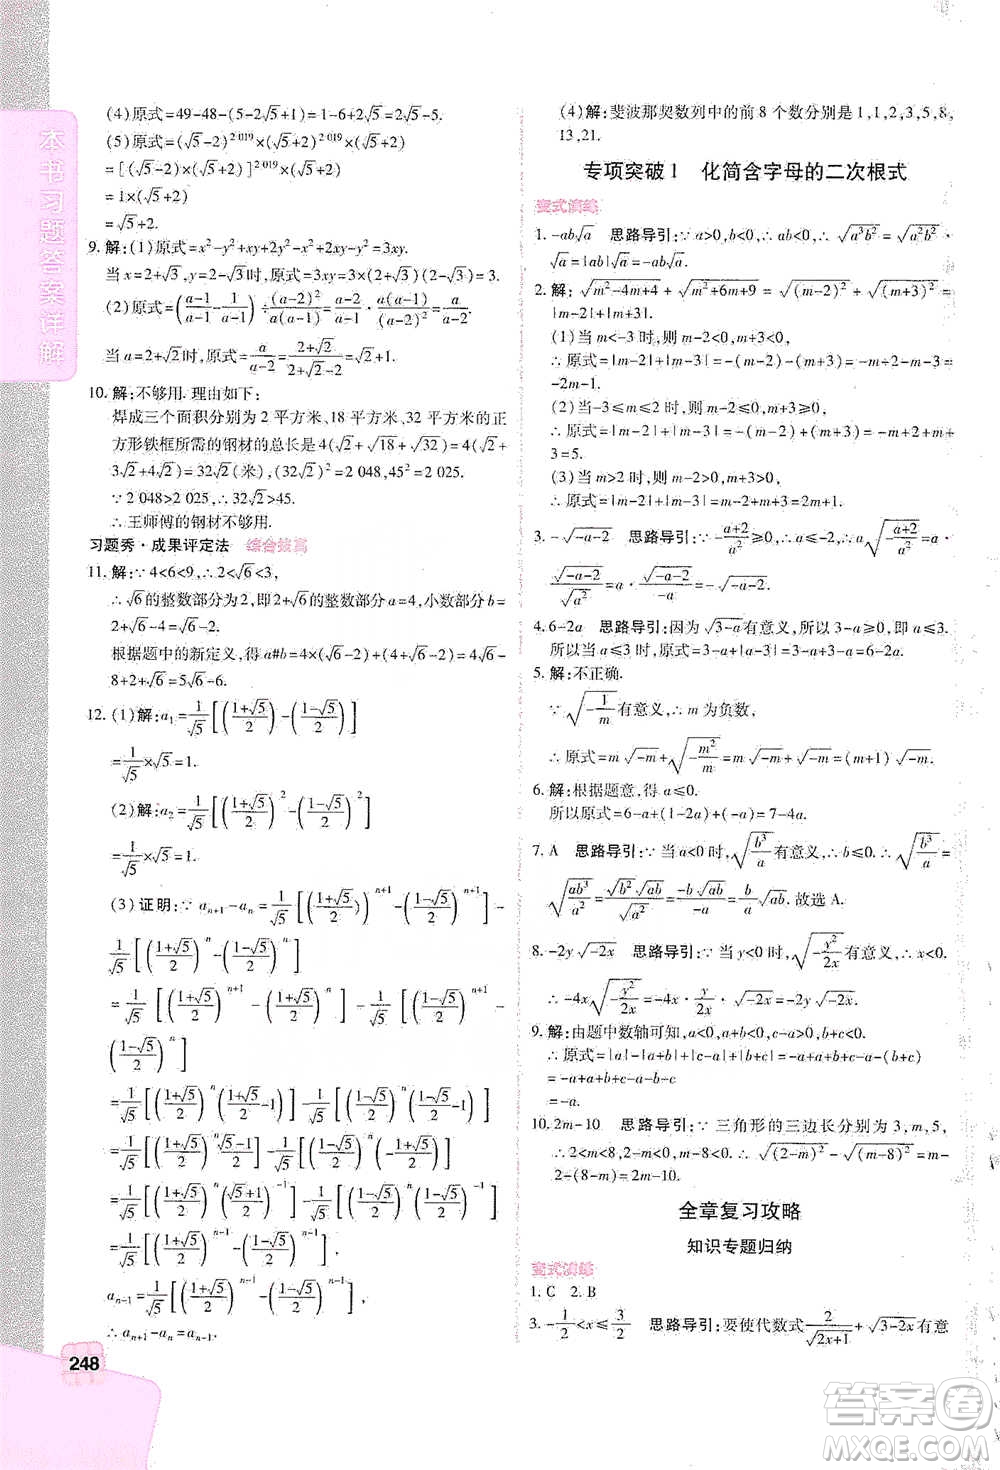 本书习题答案详解
(4)原式=49-48-(5-2√5+1)=1-6+2√5=2√5-5.
(5)原式=(√5-2)^2 019×(√5+2)^2 019×(√5+2)
=[(√5-2)×(√5+2)]^2 019×(√5+2)
=1×(√5+2)
=√5+2.
9. 解:(1)原式=x²-y²+xy+2y²-x²-y²+2xy=3xy.
当 x=2+√3,y=2-√3时,原式=3xy=3×(2+√3)(2-√3)=3.
(2)原式=((a-1)/(a-1)-1/(a-1))÷(a-2)²/(a(a-1))=(a-2)/(a-1)·a(a-1)/(a-2)²=a/(a-2).
当 a=2+√2时,原式=a/(a-2)=(2+√2)/(2+√2-2)=√2+1.
10. 解:不够用. 理由如下:
焊成三个面积分别为 2 平方米,18 平方米,32 平方米的正
方形铁框所需的钢材的总长是 4(√2+√18+√32)=4(√2+
3√2+4√2)=32√2(米),(32√2)²=2 048,45²=2 025.
∵2 048>2 025,∴32√2>45.
∴王师傅的钢材不够用.
习题秀·成果评定法 综合拔高
11. 解:∵4<6<9,∴2<√6<3,
∴√6的整数部分为2,即2+√6的整数部分 a=4,小数部分 b=
2+√6-4=√6-2.
根据题中的新定义,得 a#b=4×(√6-2)+(4+√6-2)=4√6-
8+2+√6=5√6-6.
12. (1)解:a₁=1/√5[((1+√5)/2)-((1-√5)/2)]
=1/√5×√5=1.
(2)解:a₂=1/√5[((1+√5)/2)²-((1-√5)/2)²]
=1/√5×√5=1.
(3)证明:∵a_{n+1}-a_n=1/√5[((1+√5)/2)^{n+1}-((1-√5)/2)^{n+1}]-
1/√5[((1+√5)/2)^n-((1-√5)/2)^n]
=1/√5[((1+√5)/2)^{n+1}-((1+√5)/2)^n]-1/√5[((1-√5)/2)^{n+1}-
((1-√5)/2)^n]
=1/√5[((1+√5)/2)^n((1+√5)/2-1)]-1/√5[((1-√5)/2)^n((1-√5)/2-1)]
=1/√5[((1+√5)/2)^n((√5-1)/2)]+1/√5[((1-√5)/2)^n((1+√5)/2)]
=1/√5[((1+√5)/2)^{n-1}]-1/√5[((1-√5)/2)^{n-1}],
a_{n-1}=1/√5[((1+√5)/2)^{n-1}-((1-√5)/2)^{n-1}],
∴a_{n+1}-a_n=a_{n-1}.
248
(4)解:斐波那契数列中的前 8 个数分别是 1,1,2,3,5,8,
13,21.
专项突破 1 化简含字母的二次根式
变式演练
1. -ab√a 思路导引:∵a>0,b<0,∴ab<0,∴√(a³b²)=√(a²b²)·
√a=|ab|√a=-ab√a.
2. 解:√(m²-4m+4)+√(m²+6m+9)=√((m-2)²)+√((m+3)²)=
|m-2|+|m+3|.
(1)当 m<-3 时,则 m-2<0,m+3<0,
∴原式=|m-2|+|m+3|=-(m-2)-(m+3)=-m+2-m-3=
-2m-1.
(2)当-3≤m≤2 时,则 m-2≤0,m+3≥0,
∴原式=|m-2|+|m+3|=-(m-2)+(m+3)=-m+2+m
+3=5.
(3)当 m>2 时,则 m-2>0,m+3>0,
∴原式=|m-2|+|m+3|=m-2+m+3=2m+1.
3. -√(-a-2) 思路导引:∵-(a+2)/a²≥0,∴a√(-(a+2)/a²)=a·
√(-a-2)/√(a²)=a·√(-a-2)/(-a)=-√(-a-2).
4. 6-2a 思路导引:因为√(3-a)有意义,所以3-a≥0,即 a≤3.
所以当 a≤3时,原式=3-a+3-a=6-2a.
5. 解:不正确.
∵√(-1/m)有意义,∴m 为负数,
∴原式=m√(-m)+√(-m²/m)=m√(-m)+√(-m)=(m+1)√(-m).
6. 解:根据题意,得 a≤0.
所以原式=6-a+(1-2a)+(-a)=7-4a.
7. A 思路导引:∵当 a<0时,√(b³/a)有意义,∴b≤0. ∴√(b³/a)=
√(ab³/a²)=√(b²)√(ab)/√(a²)=-b√(ab)/(-a)=b/a√(ab). 故选 A.
8. -2y√(-2x) 思路导引:∵当 y<0 时,√(-y²/2x)有意义,∴x<0.
∴-4x√(-y²/2x)=-4x·y/2x·√(-2x)=-2y√(-2x).
9. 解:由题中数轴可知,a<0,a+b<0,c-a>0,b+c<0.
∴原式=|a|-|a+b|+|c-a|+|b+c|
=-a+a+b+c-a-b-c
=-a.
10. 2m-10 思路导引:∵三角形的三边长分别为 3,m,5,
∴2<m<8,2-m<0,m-8<0.∴√((2-m)²)-√((m-8)²)=m-
2-(8-m)=2m-10.
全章复习攻略
知识专题归纳
变式演练
1. C 2. B
3. -1/2<x≤3/2 思路导引:要使代数式2/√(2x+1)+√(3-2x)有意
答案圈
MXQE.COM